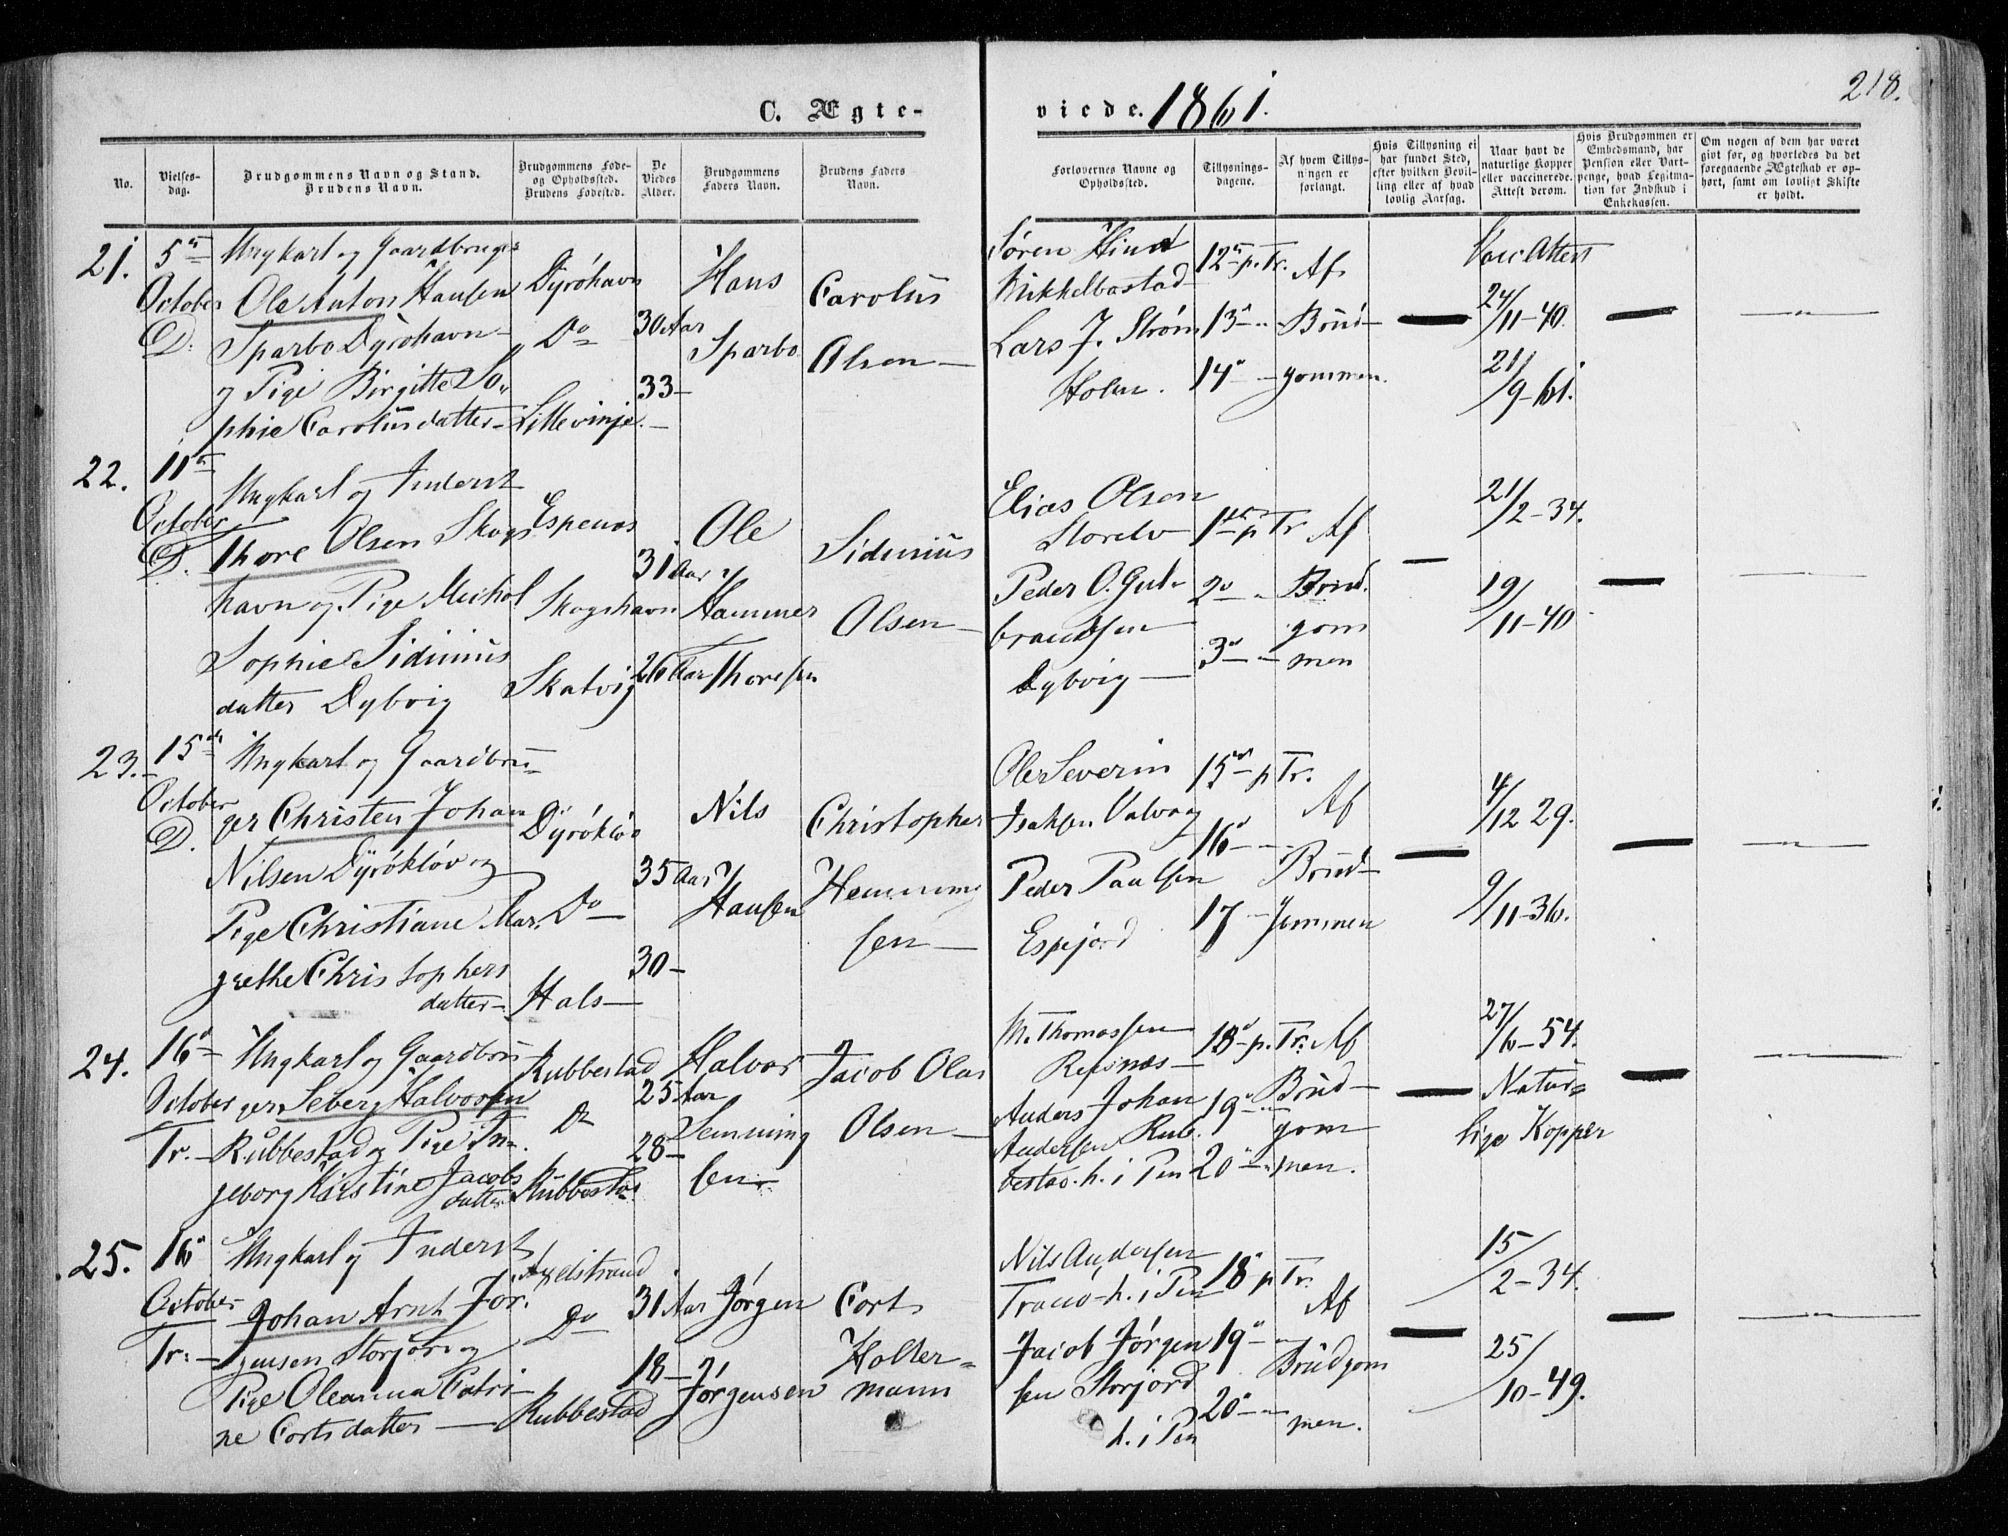 218.
C. Ægte-
viede. 1861.
No.
Vielses-
dag.
Brudgommens Navn og Stand.
Brudens Navn.
Brudgommens Føde-
og Opholdssted.
Brudens Fødested.
De
Viedes
Alder.
Brudgommens
Faders Navn.
Brudens Faders
Navn.
Forlovernes Navne og
Opholdssted.
Tillysnings-
dagene.
Af hvem Tillys-
ningen er
forlangt.
Hvis Tillysning ei
har fundet Sted,
efter hvilken Bevil-
ling eller af hvad
lovlig Aarsag.
Naar havt de
naturlige Kopper
eller vaccinerede.
Attest derom.
Hvis Brudgommen er
Embedsmand, har
Pension eller Vart-
penge, hvad Legitima-
tion for Indskud i
Enkekassen.
Om nogen af dem har været
givt før, og hvorledes da det
foregaaende Ægteskab er op-
hørt, samt om lovligt Skifte
er holdt.
21.
5te
October
D.
Ungkarl og Gaardbruger
Ole Anton Hansen
Sparbo Dyröhavn
og Pige Birgitte So-
phie Carolusdatter
Dyröhavn
Do
Lillevinje.
30 Aar
33
Hans
Sparbo
Carolus
Olsen
Søren
Mikkelbostad
Lars J. Strøm
Holm.
12te p. Tr.
13de
14de
Af
Brüd-
gommen.
Vacc. Attest
24/11-40.
21/9-61.
22.
11te
October
D.
Ungkarl og Inderst
Thore Olsen Skogs-
havn og Pige Michol
Sophie Sidinius
datter Dybvig
Espenes
Skogshavn
Skatvig
31 Aar
26 Aar
Ole
Hammer
Thoresen
Sidinius
Olsen
Elias Olsen
Storelv
Peder O. Gul-
brandsen
Dybvig
1ste p Tr
2d
3d
Af
Brüd.
gom
men
21/2-34.
19/11-40
23.
15de
October
D.
Ungkarl og Gaardbrü-
ger Christen Johan
Nilsen Dyröklöv og
Pige Christiane Mar-
grethe Christophers
datter
Dyröklöv
Do
Hals
35 Aar
30
Nils
Hansen
Christopher
Hemming
sen
Ole Severin
Isaksen Valvag
Peder Paulsen
Espejord
15de p Tr.
16d
17
Af
Brüd-
gommen
4/12 29.
9/11-36.
24.
16d
October
Tr.
Ungkarl og Gaardbrü-
ger Seberg Halvorsen
Rubbestad og Pige In-
geborg Kirstine Jacobs
datter
Rubbestad
Do
Rubbestad
25 Aar
28
Halvor
Hemming
sen
Jacob Olai
Olsen
M. Thomassen
Refsnæs
Anders Johan
Andersen Rub-
bestad. h. i Pen
18d p. Tr.
19d
20d
Af
Brüd-
gom
men.
27/6-54.
Natür-
lige Kopper
25.
16d
October
Tr.
Ungkarl og Inderst
Johan Arnt Jör-
gensen Storjord og
Pige Oleanna Catri-
ne Cortsdatter
Do
Rubbestad
31 Aar
18
Jörgen
Jörgensen
Cort
Holter-
mann
Nils Andersen
Tranö h. i Pen
Jacob Jörgen
sen Storjord
h. i Pen
18d p Tr.
19d
20d
Af
Brüdgom
men.
15/2-34.
25/10-49.